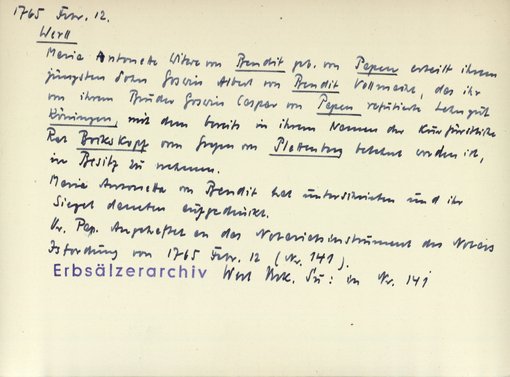 1765 Febr. 12.
Werl
Maria Antonetta Witwe von Bendit geb. von Papen erteilt ihrem
jüngsten Sohn Goswin Albert von Bendit Vollmacht, das ihr
von ihrem Bruder Goswin Caspar von Papen refutierte Lehngut
Köningen, mit dem bereits in ihrem Namen der Kurfürstliche
Rat Brökskopf vom Grafen von Plettenberg belehnt worden ist,
in Besitz zu nehmen.
Maria Antonetta von Bendit hat unterschrieben und ihr
Siegel daneben aufgedrückt.
Or. Pap. Angeheftet an das Notariatsinstrument des Notars
von 1765 Febr. 12 (Nr. 141).
Erbsälzerarchiv Werl Urk. Su: in Nr. 141